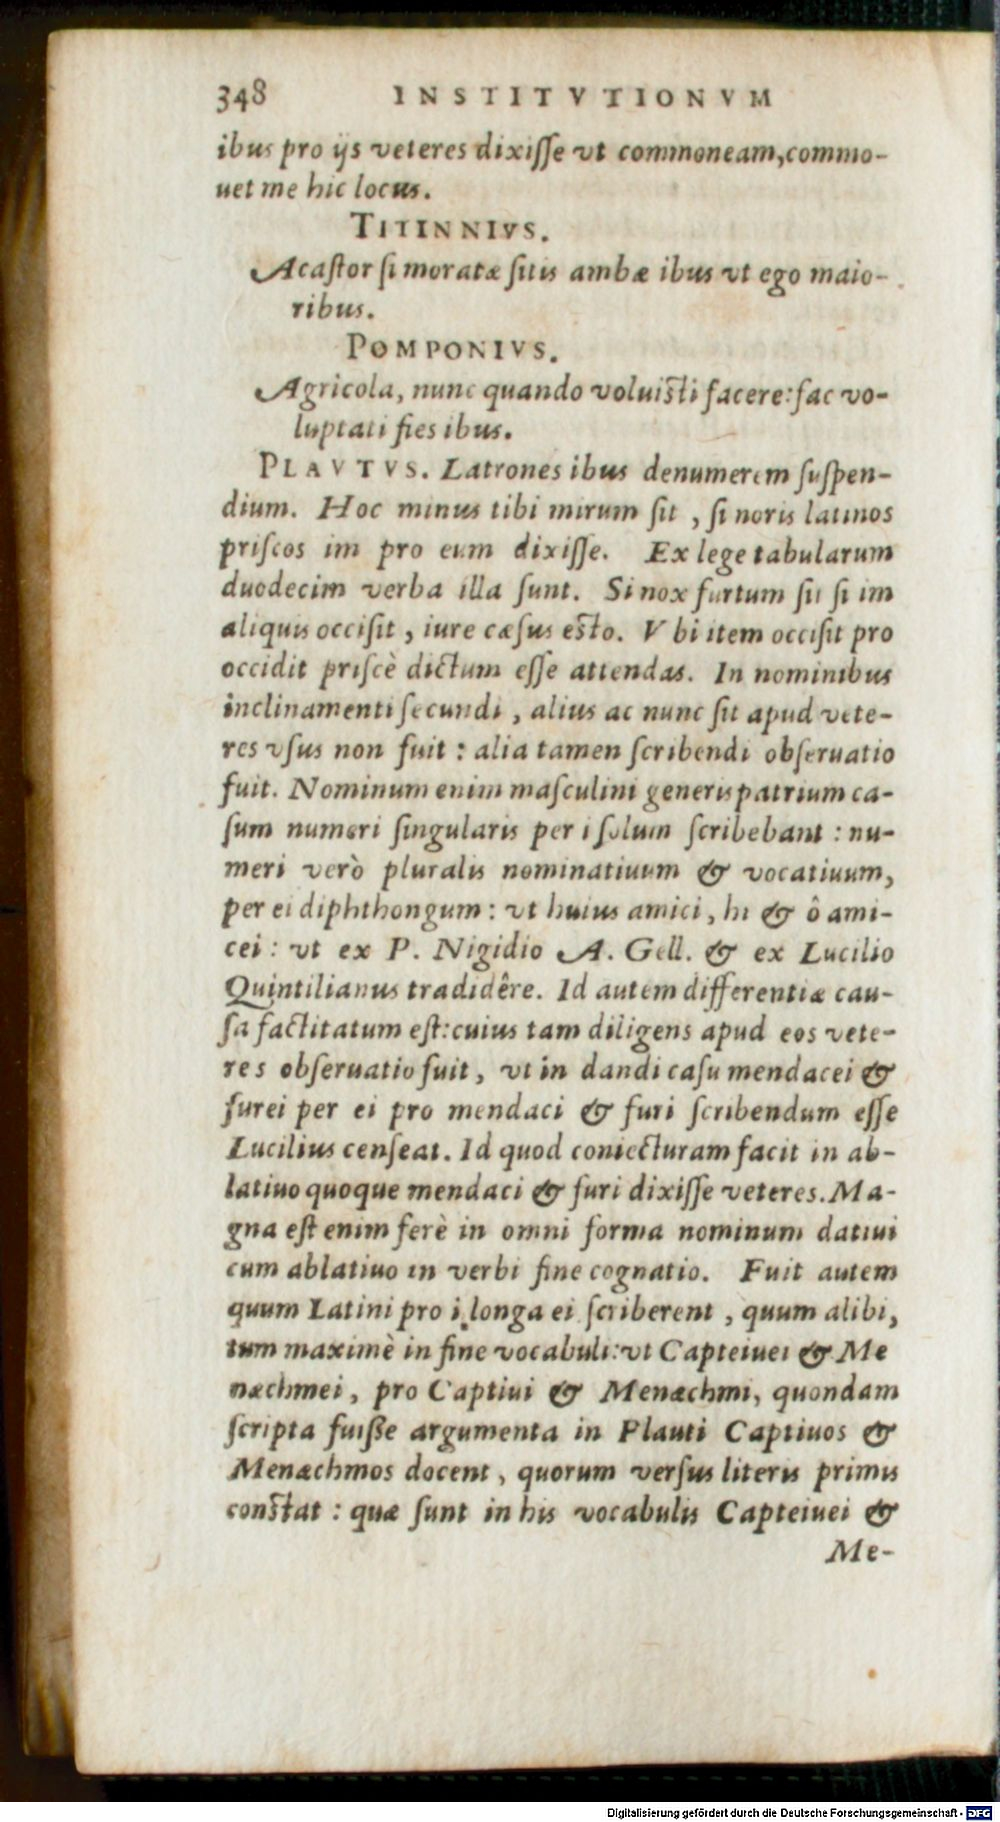 348 INSTITVTIONVM
ibus pro ijs veteres dixiſſe vt commoneam,commo-
uet me hic locus.
TITINNIVS.
Acaſtor ſi moratæ ſitis ambæ ibus vt ego maio-
ribus.
POMPONIVS.
Agricola, nunc quando voluisti facere:fac vo-
luptati fies ibus.
PLAVTVS. Latrones ibus denumerem ſuſpen-
dium. Hoc minus tibi mirum ſit , ſi noris latinos
priſcos im pro eum dixiſſe. Ex lege tabularum
duodecim verba illa ſunt. Si nox furtum ſit ſi im
aliquis occiſit , iure cæſus esto. V bi item occiſit pro
occidit priſcè dictum eſſe attendas. In nominibus
inclinamenti ſecundi , alius ac nunc ſit apud vete-
res vſus non fuit : alia tamen ſcribendi obſeruatio
fuit. Nominum enim maſculini generis patrium ca-
ſum numeri ſingularis per i ſolum ſcribebant : nu-
meri verò pluralis nominatiuum & vocatiuum,
per ei diphthongum : vt huius amici , hi & ô ami-
cei : vt ex P. Nigidio A. Gell. & ex Lucilio
Quintilianus tradidêre. Id autem differentiæ cau-
ſa factitatum eſt:cuius tam diligens apud eos vete-
res obſeruatio fuit , vt in dandi caſu mendacei &
furei per ei pro mendaci & furi ſcribendum eſſe
Lucilius cenſeat. Id quod coniecturam facit in ab-
latiuo quoque mendaci & furi dixiſſe veteres. Ma-
gna eſt enim ferè in omni forma nominum datiui
cum ablatiuo in verbi fine cognatio. Fuit autem
quum Latini pro i longa ei ſcriberent , quum alibi,
tum maximè in fine vocabuli:vt Capteiuei & Me
næchmei , pro Captiui & Menæchmi, quondam
ſcripta fuiße argumenta in Plauti Captiuos &
Menæchmos docent , quorum verſus literis primis
constat : quæ ſunt in his vocabulis Capteiuei &
Me-
Digitalisierung gefördert durch die Deutsche Forschungsgemeinschaft - DFG